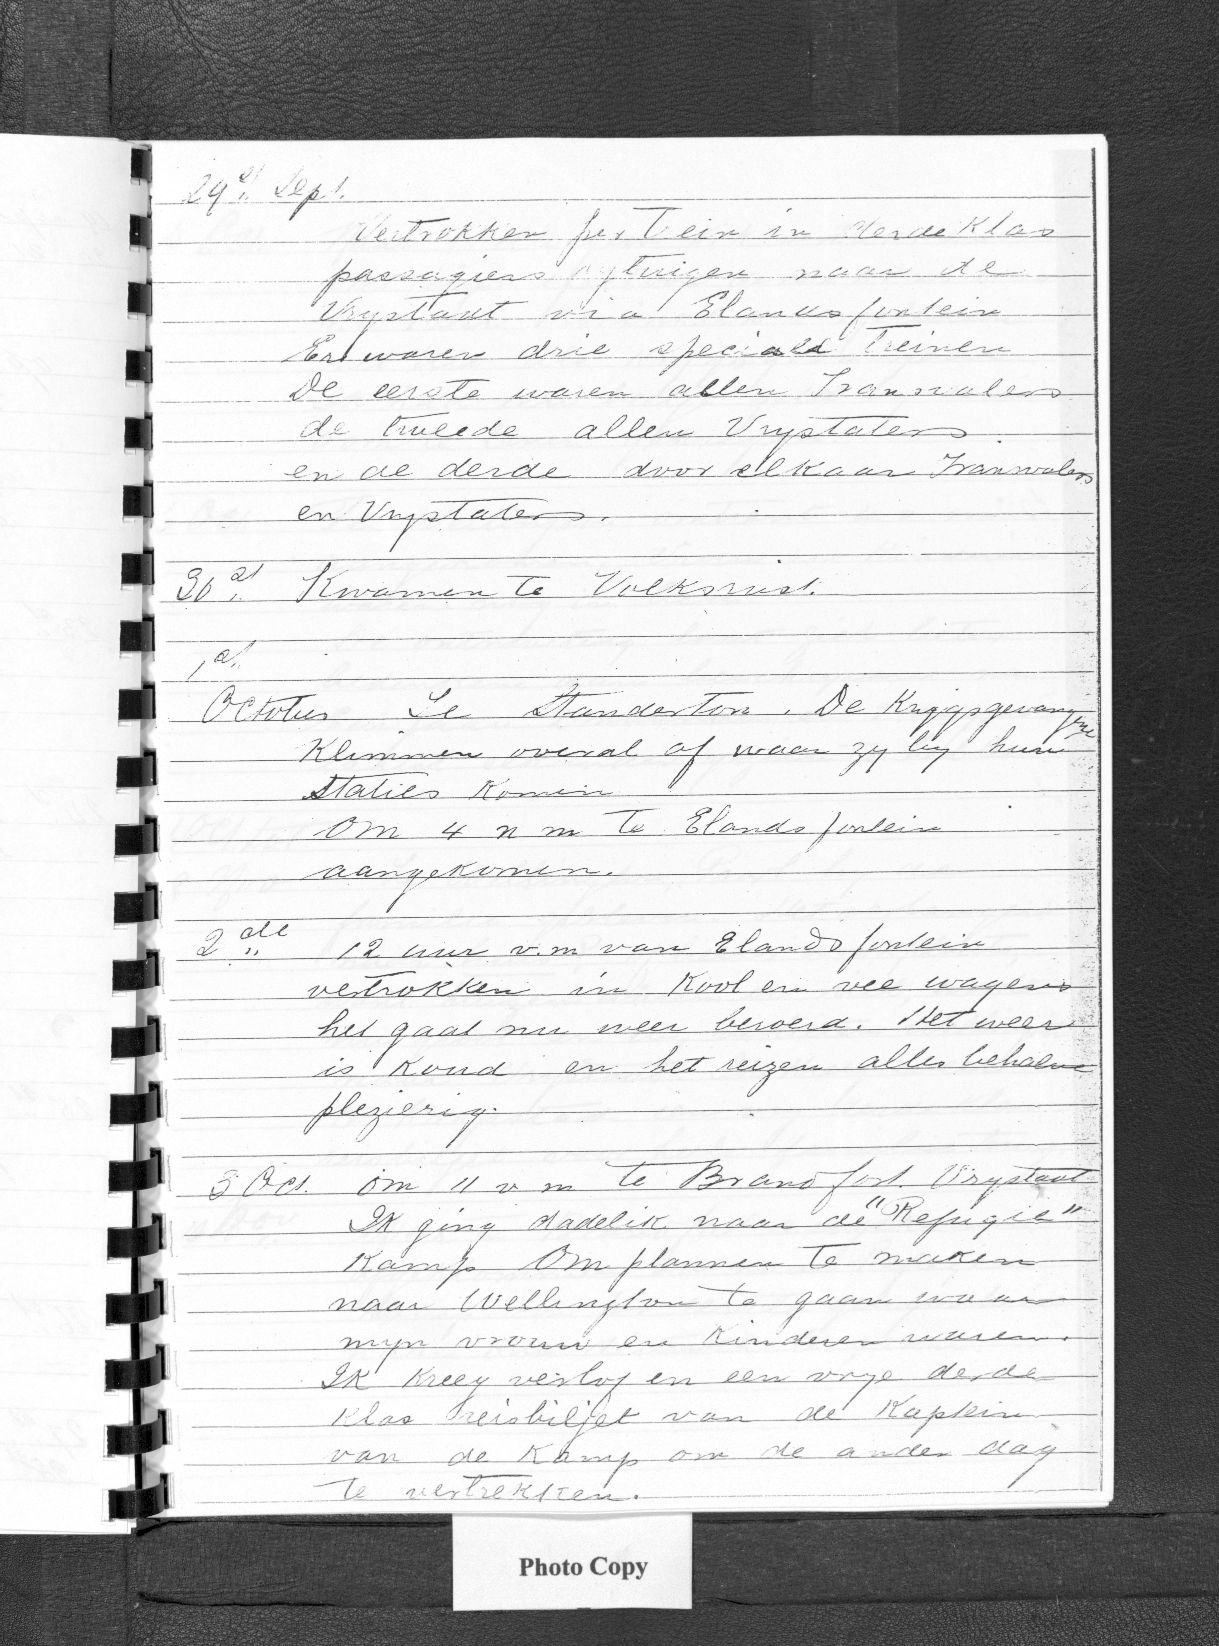 29st Sept.
Vertrokken per Trein in derde Klas
passagiers rytuigen naar de
Vrystaat via Elandsfontein
Er waren drie speciale Treinen
De eerste waren allen Transvalers
de tweede allen Vrystaters
en de derde door elkaar Transvalers
en Vrystaters.
30st Kwamen te Volksrust.
1st
October Te Standerton. De Krygsgevangene
Klimmen overal af waar zy by hun
Staties Komen
Om 4 n m te Elandsfontein
aangekomen.
2de 12 uur v.m van Elandsfontein
vertrokken in Kool en vee wagens
het gaat nu weer beroerd. Het weer
is Koud en het reizen alles behalve
plezierig.
3 Oct. om 11 v m te Brandfort. Vrystaat
Ik ging dadelik naar de "Refugie"
Kamp Om plannen te maken
naar Wellington te gaan waar
myn vrouw en Kinderen waren.
Ik Kreeg verlof en een vrye derde
Klas reisbiljet van de Kaptein
van de Kamp om de ander dag
te vertrekken.
Photo Copy